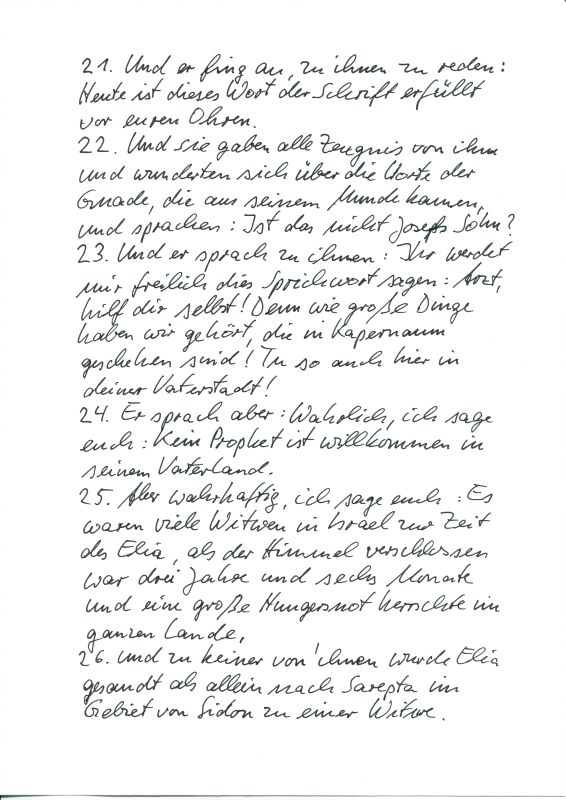 21. Und er fing an, zu ihnen zu reden:
Heute ist dieses Wort der Schrift erfüllt
vor euren Ohren.
22. Und sie gaben alle Zeugnis von ihm
und wunderten sich über die Worte der
Gnade, die aus seinem Munde kamen,
und sprachen: Ist das nicht Josephs Sohn?
23. Und er sprach zu ihnen: Ihr werdet
mir freilich dies Sprichwort sagen: Arzt,
hilf dir selbst! Denn wie große Dinge
haben wir gehört, die in Kapernaum
geschehen sind! Tu so auch hier in
deiner Vaterstadt!
24. Er sprach aber: Wahrlich, ich sage
euch: Kein Prophet ist willkommen in
seinem Vaterland.
25. Aber wahrhaftig, ich sage euch: Es
waren viele Witwen in Israel zur Zeit
des Elia, als der Himmel verschlossen
war drei Jahre und sechs Monate
und eine große Hungersnot herrschte im
ganzen Lande,
26. und zu keiner von ihnen wurde Elia
gesandt als allein nach Sarepta im
Gebiet von Sidon zu einer Witwe.